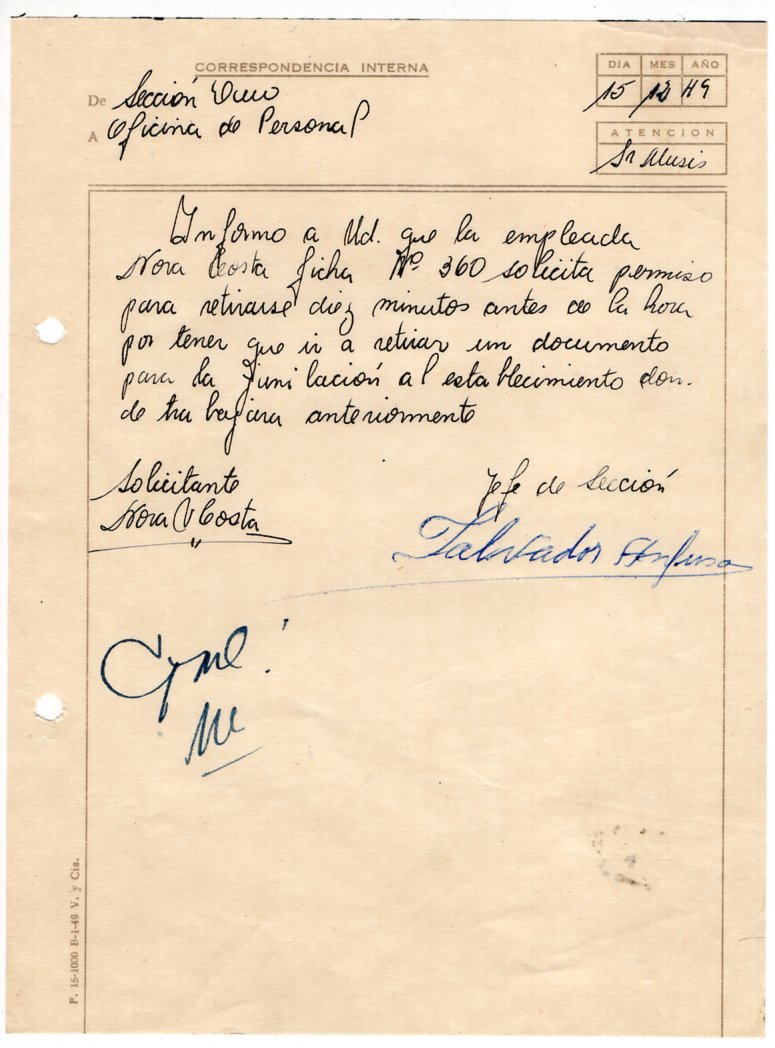 CORRESPONDENCIA INTERNA
DIA MES AÑO
15 12 49
De Sección
A Oficina de Personal
ATENCION
Sr
Informo a Ud. que la empleada
Nora Costa ficha Nº 360 solicita permiso
para retirarse diez minutos antes de la hora
por tener que ir a retirar un documento
para la Junilación al establecimiento don-
de trabajara anteriormente
Solicitante
Nora V Costa
Jefe de Sección
Salvador
P. 15-1000 B-1-49 V. y Cía.